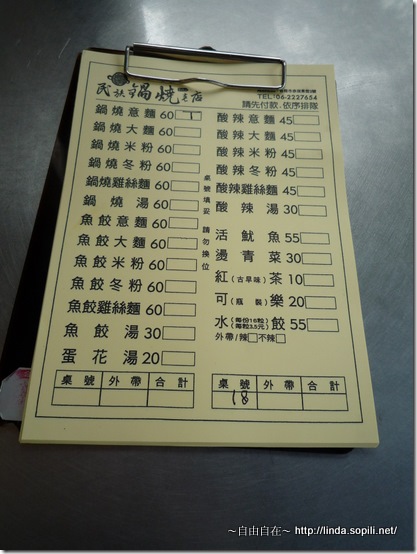 民族鍋燒老店
TEL:06-2227654
請先付款.依序排隊
鍋燒意麵 60 1
鍋燒大麵 60
鍋燒米粉 60
鍋燒冬粉 60
鍋燒雞絲麵 60
鍋燒湯 60
魚餃意麵 60
魚餃大麵 60
魚餃米粉 60
魚餃冬粉 60
魚餃雞絲麵 60
魚餃湯 30
蛋花湯 20
桌號填妥 請勿換位
酸辣意麵 45
酸辣大麵 45
酸辣米粉 45
酸辣冬粉 45
酸辣雞絲麵 45
酸辣湯 30
活魷魚 55
燙青菜 30
紅(古早味)茶 10
可(瓶裝)樂 20
水(每份16粒)(每粒3.5元)餃 55
外帶/辣 不辣
桌號 外帶 合計
桌號 外帶 合計
18
～自由自在～ http://linda.sopili.net/